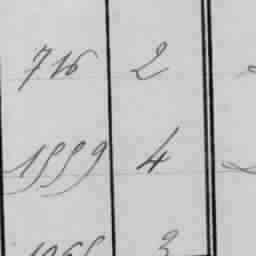 716 2
1559 4
3